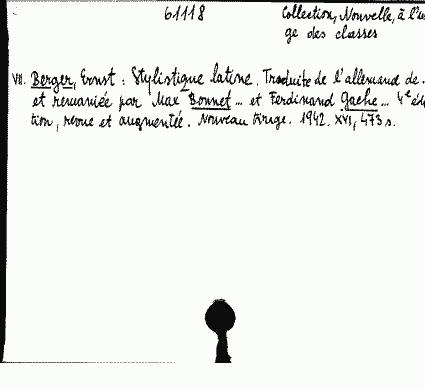 61118 Collection, Nouvelle, à l'u
ge des classes
VII. Berger, Ernst : Stylistique latine. Traduite de l'allemand de
et remaniée par Max Bonnet ... et Ferdinand Gache ... 4e éd
tion, revue et augmentée. Nouveau tirage. 1942. XVI, 473 s.